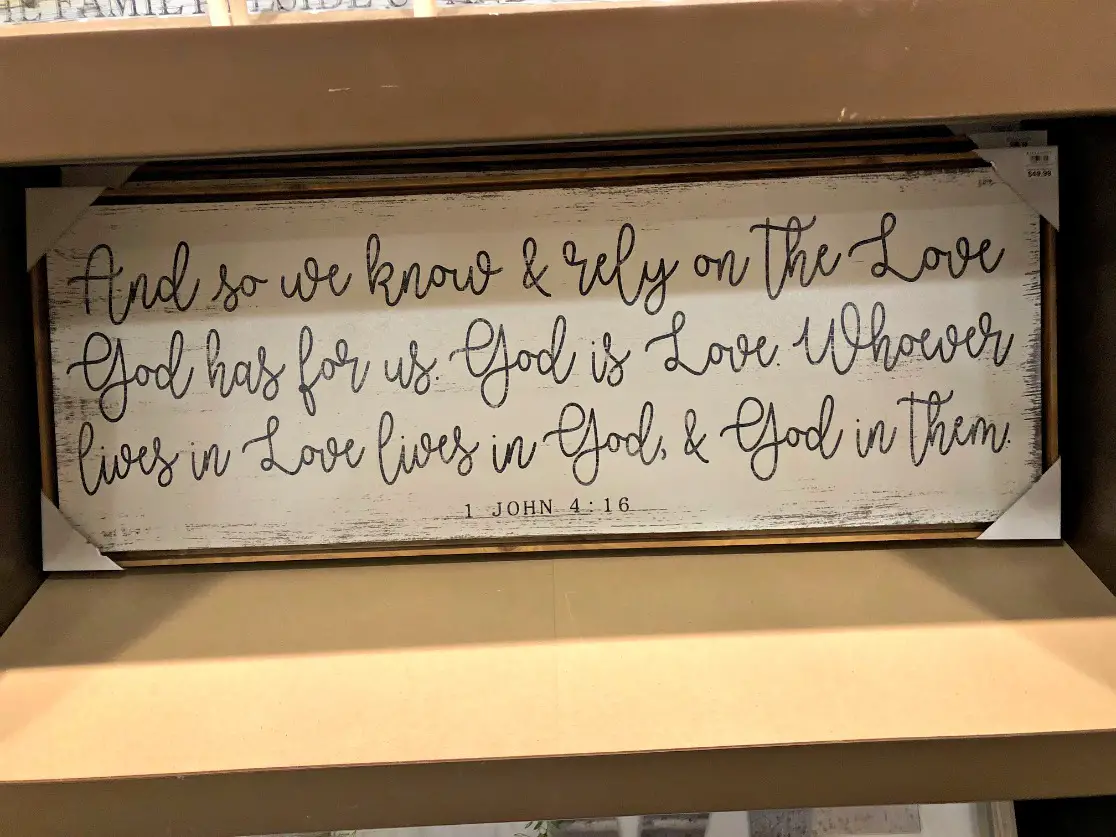 FAMILY
And so we know & rely on the Love
God has for us. God is Love. Whoever
lives in Love lives in God, & God in them.
1 JOHN 4:16
$49.99